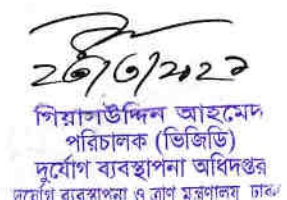 ২৬/৬/২০২২
গিয়াসউদ্দিন আহমেদ
পরিচালক (ভিজিডি)
দুর্যোগ ব্যবস্থাপনা অধিদপ্তর
দুর্যোগ ব্যবস্থাপনা ও ত্রাণ মন্ত্রণালয় ঢাকা